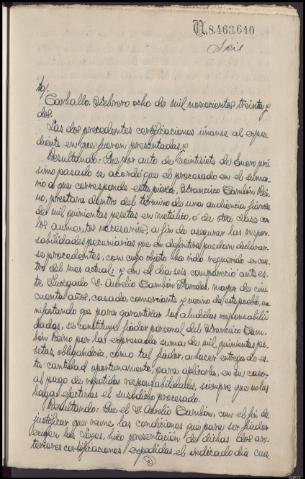 N.8.463.640
Seis
Carballo Febrero ocho de mil novecientos treinta y
dos.
Las dos precedentes certificaciones únanse al expe-
diente en que fueron presentadas y
Resultando: Que por auto de veintisiete de Enero pró-
ximo pasado se acordó que el procesado en el suma-
rio a que corresponde esta pieza, Francisco Cambón
prestara dentro del término de una audiencia, fianza
de mil quinientas pesetas en metálico, o de otra clase con
los aumentos necesarios, a fin de asegurar las respon-
sabilidades pecuniarias que en definitiva puedan declarar-
se procedentes, con cuyo objeto ha sido requerido en
del mes actual; y en el día seis compareció ante es-
te Juzgado D. Aurelio Cambón mayor de cin-
cuenta años, casado, comerciante y vecino de esta ma-
nifestando que para garantizar las aludidas responsabili-
dades, se constituye fiador personal del Francisco Cam-
bón por la expresada suma de mil quinientas pe-
setas, obligándose, como tal fiador, a hacer entrega de es-
ta cantidad oportunamente, para aplicarla, en su caso
al pago de repetidas responsabilidades, siempre que no las
haga efectivas el susodicho procesado.
Resultando: Que el D. Aurelio Cambón, con el fin de
justificar que reúne las condiciones que para ser fiador
exigen las Leyes, hizo presentación de dichas dos an-
teriores certificaciones expedidas el indicado día cua-